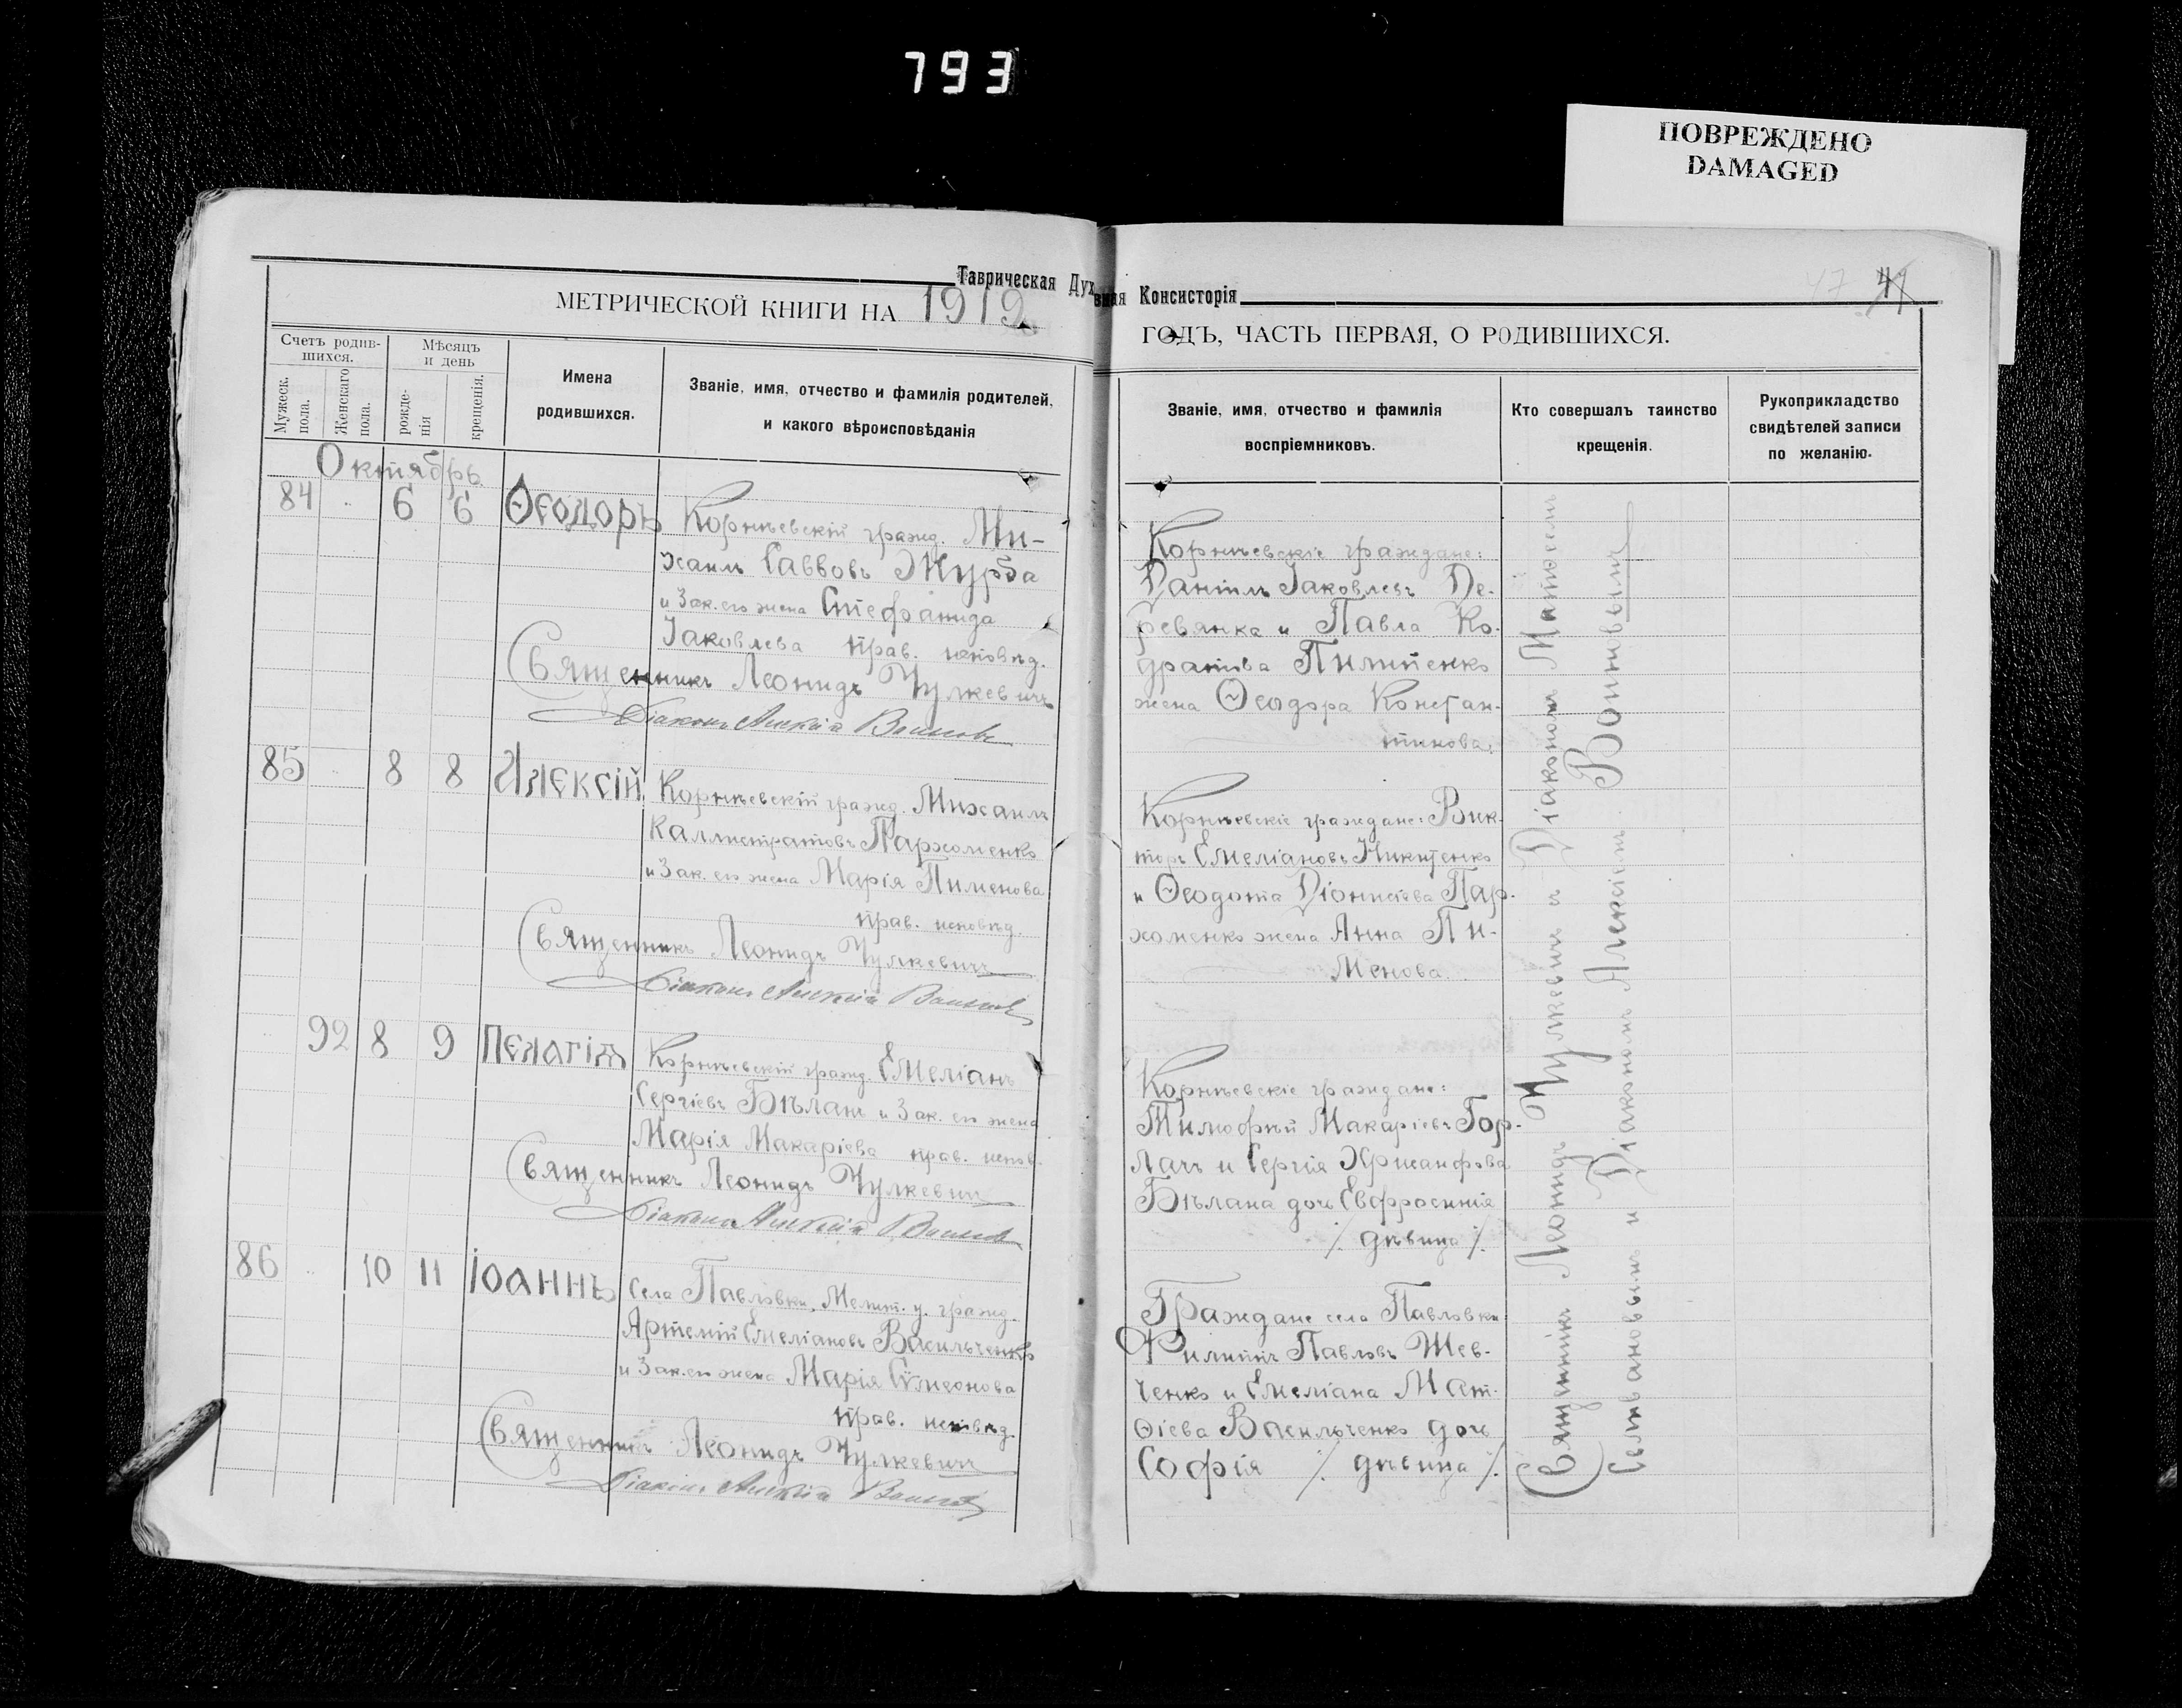 793
ПОВРЕЖДЕНО
DAMAGED
Таврическая Духовная Консисторія
47 41
МЕТРИЧЕСКОЙ КНИГИ НА 1919
ГОДЪ, ЧАСТЬ ПЕРВАЯ, О РОДИВШИХСЯ.
Счетъ родив-
шихся.
Мужеск.
пола.
Женскаго
пола.
Мѣсяцъ
и день
рожде-
нія
крещенія.
Имена
родившихся.
Званіе, имя, отчество и фамилія родителей,
и какого вѣроисповѣданія
Званіе, имя, отчество и фамилія
воспріемниковъ.
Кто совершалъ таинство
крещенія.
Рукоприкладство
свидѣтелей записи
по желанію.
Октябрь
84 6 6 Ѳеодоръ
Корнѣевскій гражд. Ми-
хаилъ Саввовъ Журба
и Зак. его жена Стефанида
Іаковлева прав. исповѣд.
Священникъ Леонидъ Чулкевичъ
Діаконъ Алексій Воиновъ
Корнѣевскіе граждане:
Даніилъ Іаковлевъ Де-
ревянка и Павла Ко-
дратова Пилипенко
жена Ѳеодора Констан-
тинова.
85 8 8 Алексій
Корнѣевскій гражд. Михаилъ
Каллистратовъ Пархоменко
и Зак. его жена Марія Пименова
прав. исповѣд.
Священникъ Леонидъ Чулкевичъ
Діаконъ Алексій Воиновъ
Корнѣевскіе граждане: Вик-
торъ Емеліановъ Никитенко
и Ѳеодота Діонисіева Пар-
хоменко жена Анна Пи-
менова.
92 8 9 Пелагія
Корнѣевскій гражд. Емеліанъ
Сергіевъ Бѣланъ и Зак. его жена
Марія Макаріева прав. испов.
Священникъ Леонидъ Чулкевичъ
Діаконъ Алексій Воиновъ
Корнѣевскіе граждане:
Тимофѣй Макаріевъ Гор-
лачъ и Сергія Хрисанфова
Бѣлана дочь Евфросинія
/. дѣвица /.
86 10 11 Іоаннъ
Села Павловки, Мелит. у. гражд.
Артемій Емеліановъ Васильченко
и Зак. его жена Марія Сѵмеонова
прав. исповѣд.
Священникъ Леонидъ Чулкевичъ
Діаконъ Алексій Воиновъ
Граждане села Павловки
Филиппъ Павловъ Шев-
ченко и Емеліана Мат-
ѳіева Васильченко дочь
Софія /. дѣвица /.
Священникъ Леонидъ Чулкевичъ и Діакономъ Матѳеемъ
Селивановымъ и Діакономъ Алексіемъ Воиновымъ